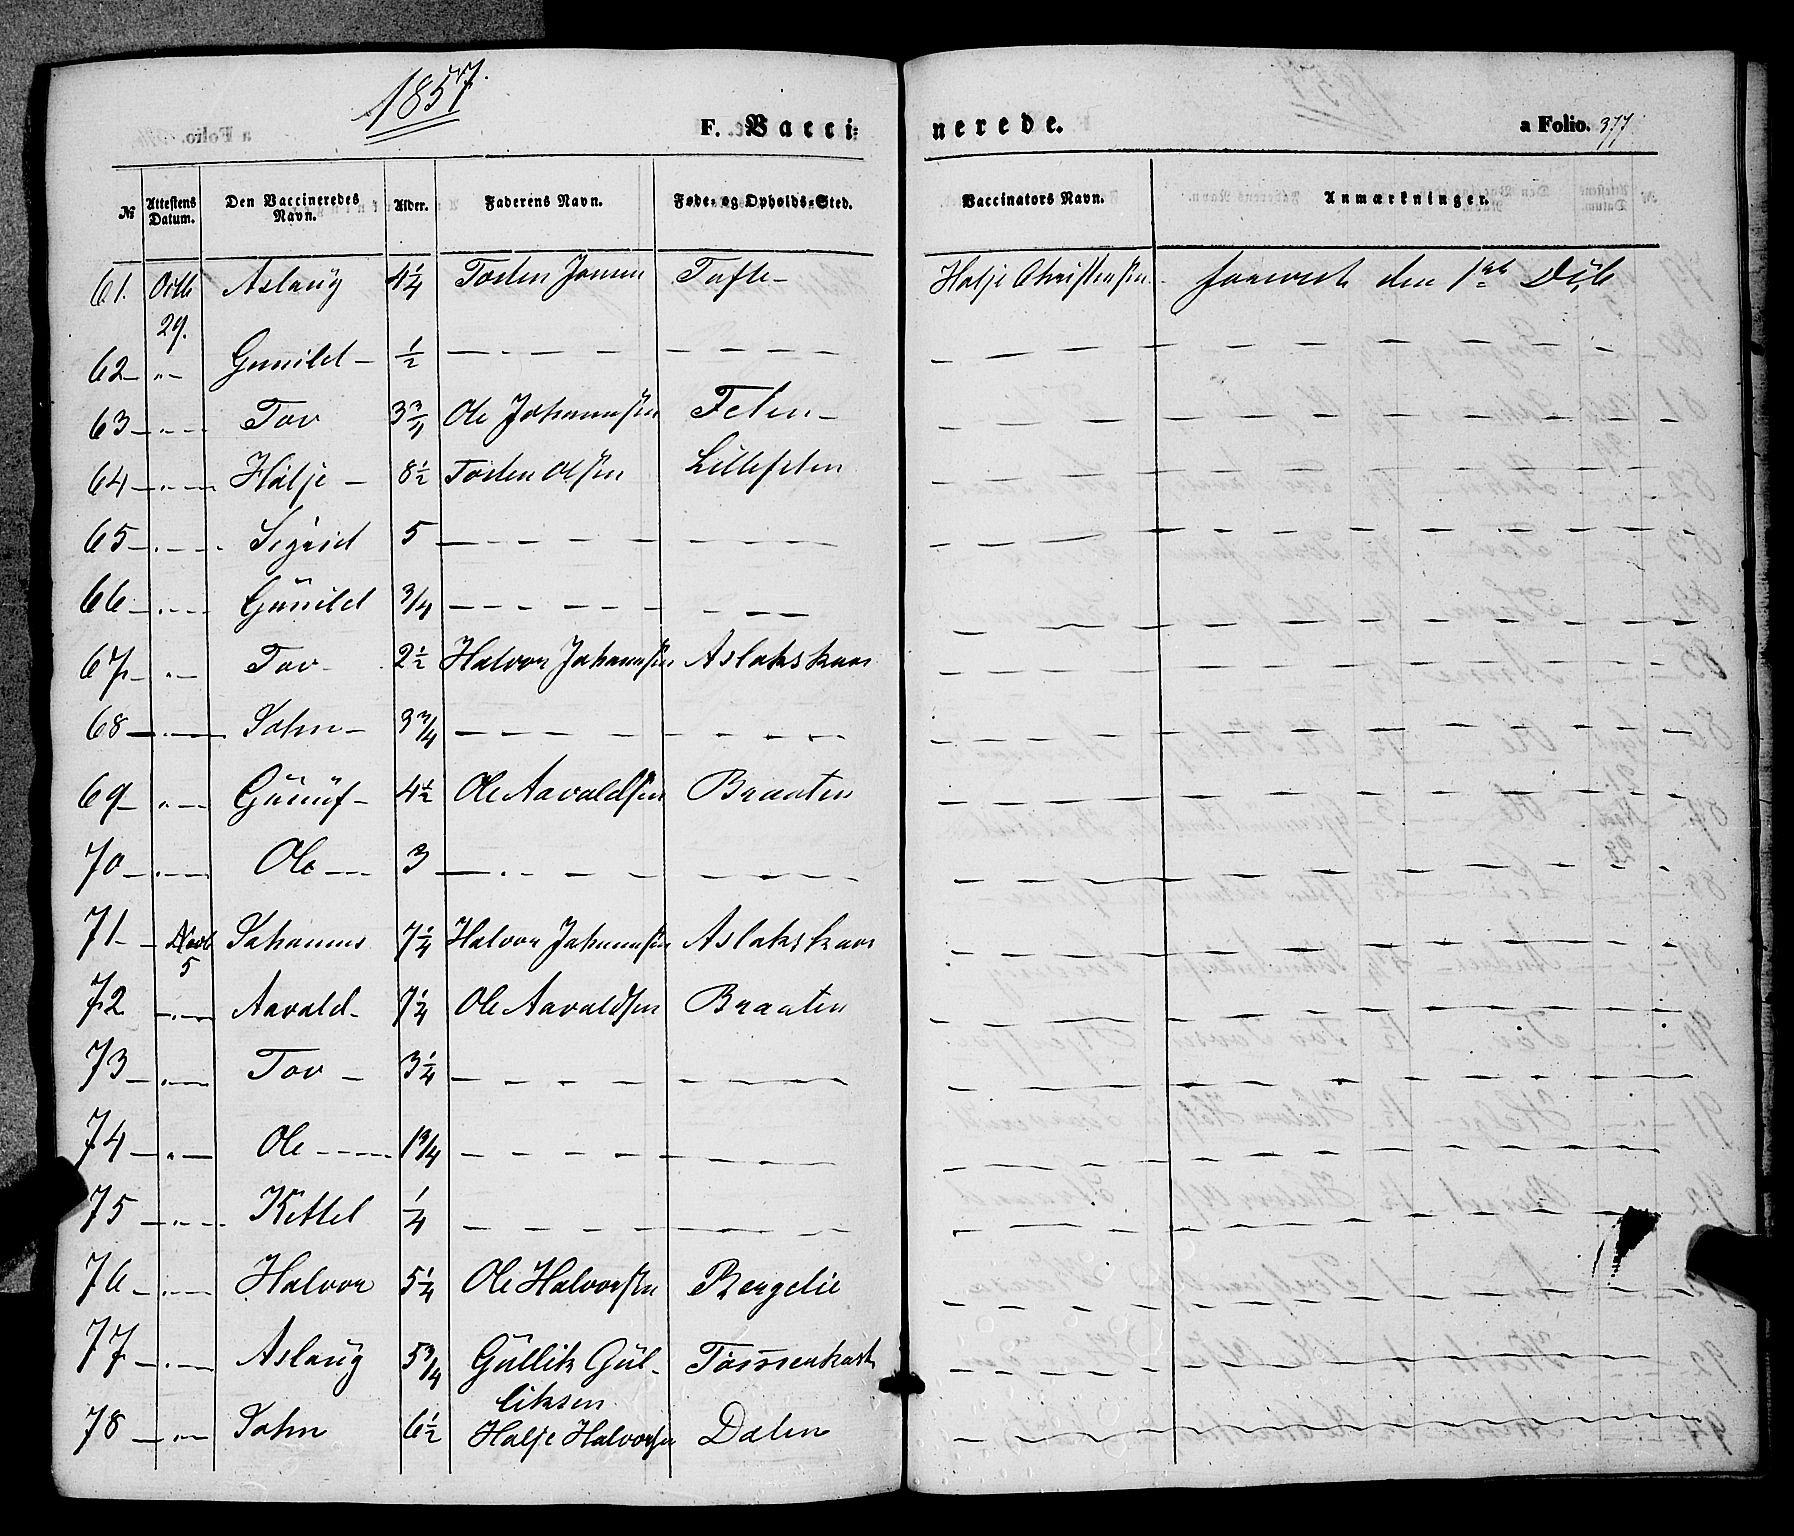 1857.
F. Vaccinerede. a Folio. 377
№ Attestens Datum. Den Vaccineredes Navn. Alder. Faderens Navn. Føde- og Opholds-Sted. Vaccinators Navn. Anmærkninger.
61. Octb 29. Aslaug 4 1/4 Tosten Jonsen Tofte- Halje Christensen. den 1ste
62 - " - Gunild - 1/2 — — — — — —
63 - " - Tov 3 3/4 Ole Johannesen Felen - — —
64 - " - Halje - 8 1/2 Tosten Olsen Lillefelen — —
65 - " - Sigrid 5 — — — — — —
66 - " - Gunild 3/4 — — — — — —
67 - " - Tov - 2 1/2 Halvor Johannesen Aslakskaas — —
68 - " - John - 3 3/4 — — — — — —
69 - " - Gunuf - 4 1/2 Ole Aavaldsen Braaten — —
70 - " - Ole - 3 — — — — — —
71 - Novb 5 Johannes 7 1/4 Halvor Johannesen Aslakskaas — —
72 - " - Aavald - 7 1/4 Ole Aavaldsen Braaten — —
73 - " - Tov - 3 1/4 — — — — — —
74 - " - Ole - 1 3/4 — — — — — —
75 - " - Kittel 1/4 — — — — — —
76 - " - Halvor 5 1/4 Ole Halvorsen Bergelie — —
77 - " - Aslaug 5 3/4 Gullik Gulliksen — —
78 - " - John 6 1/2 Halje Halvorsen Dalen — —